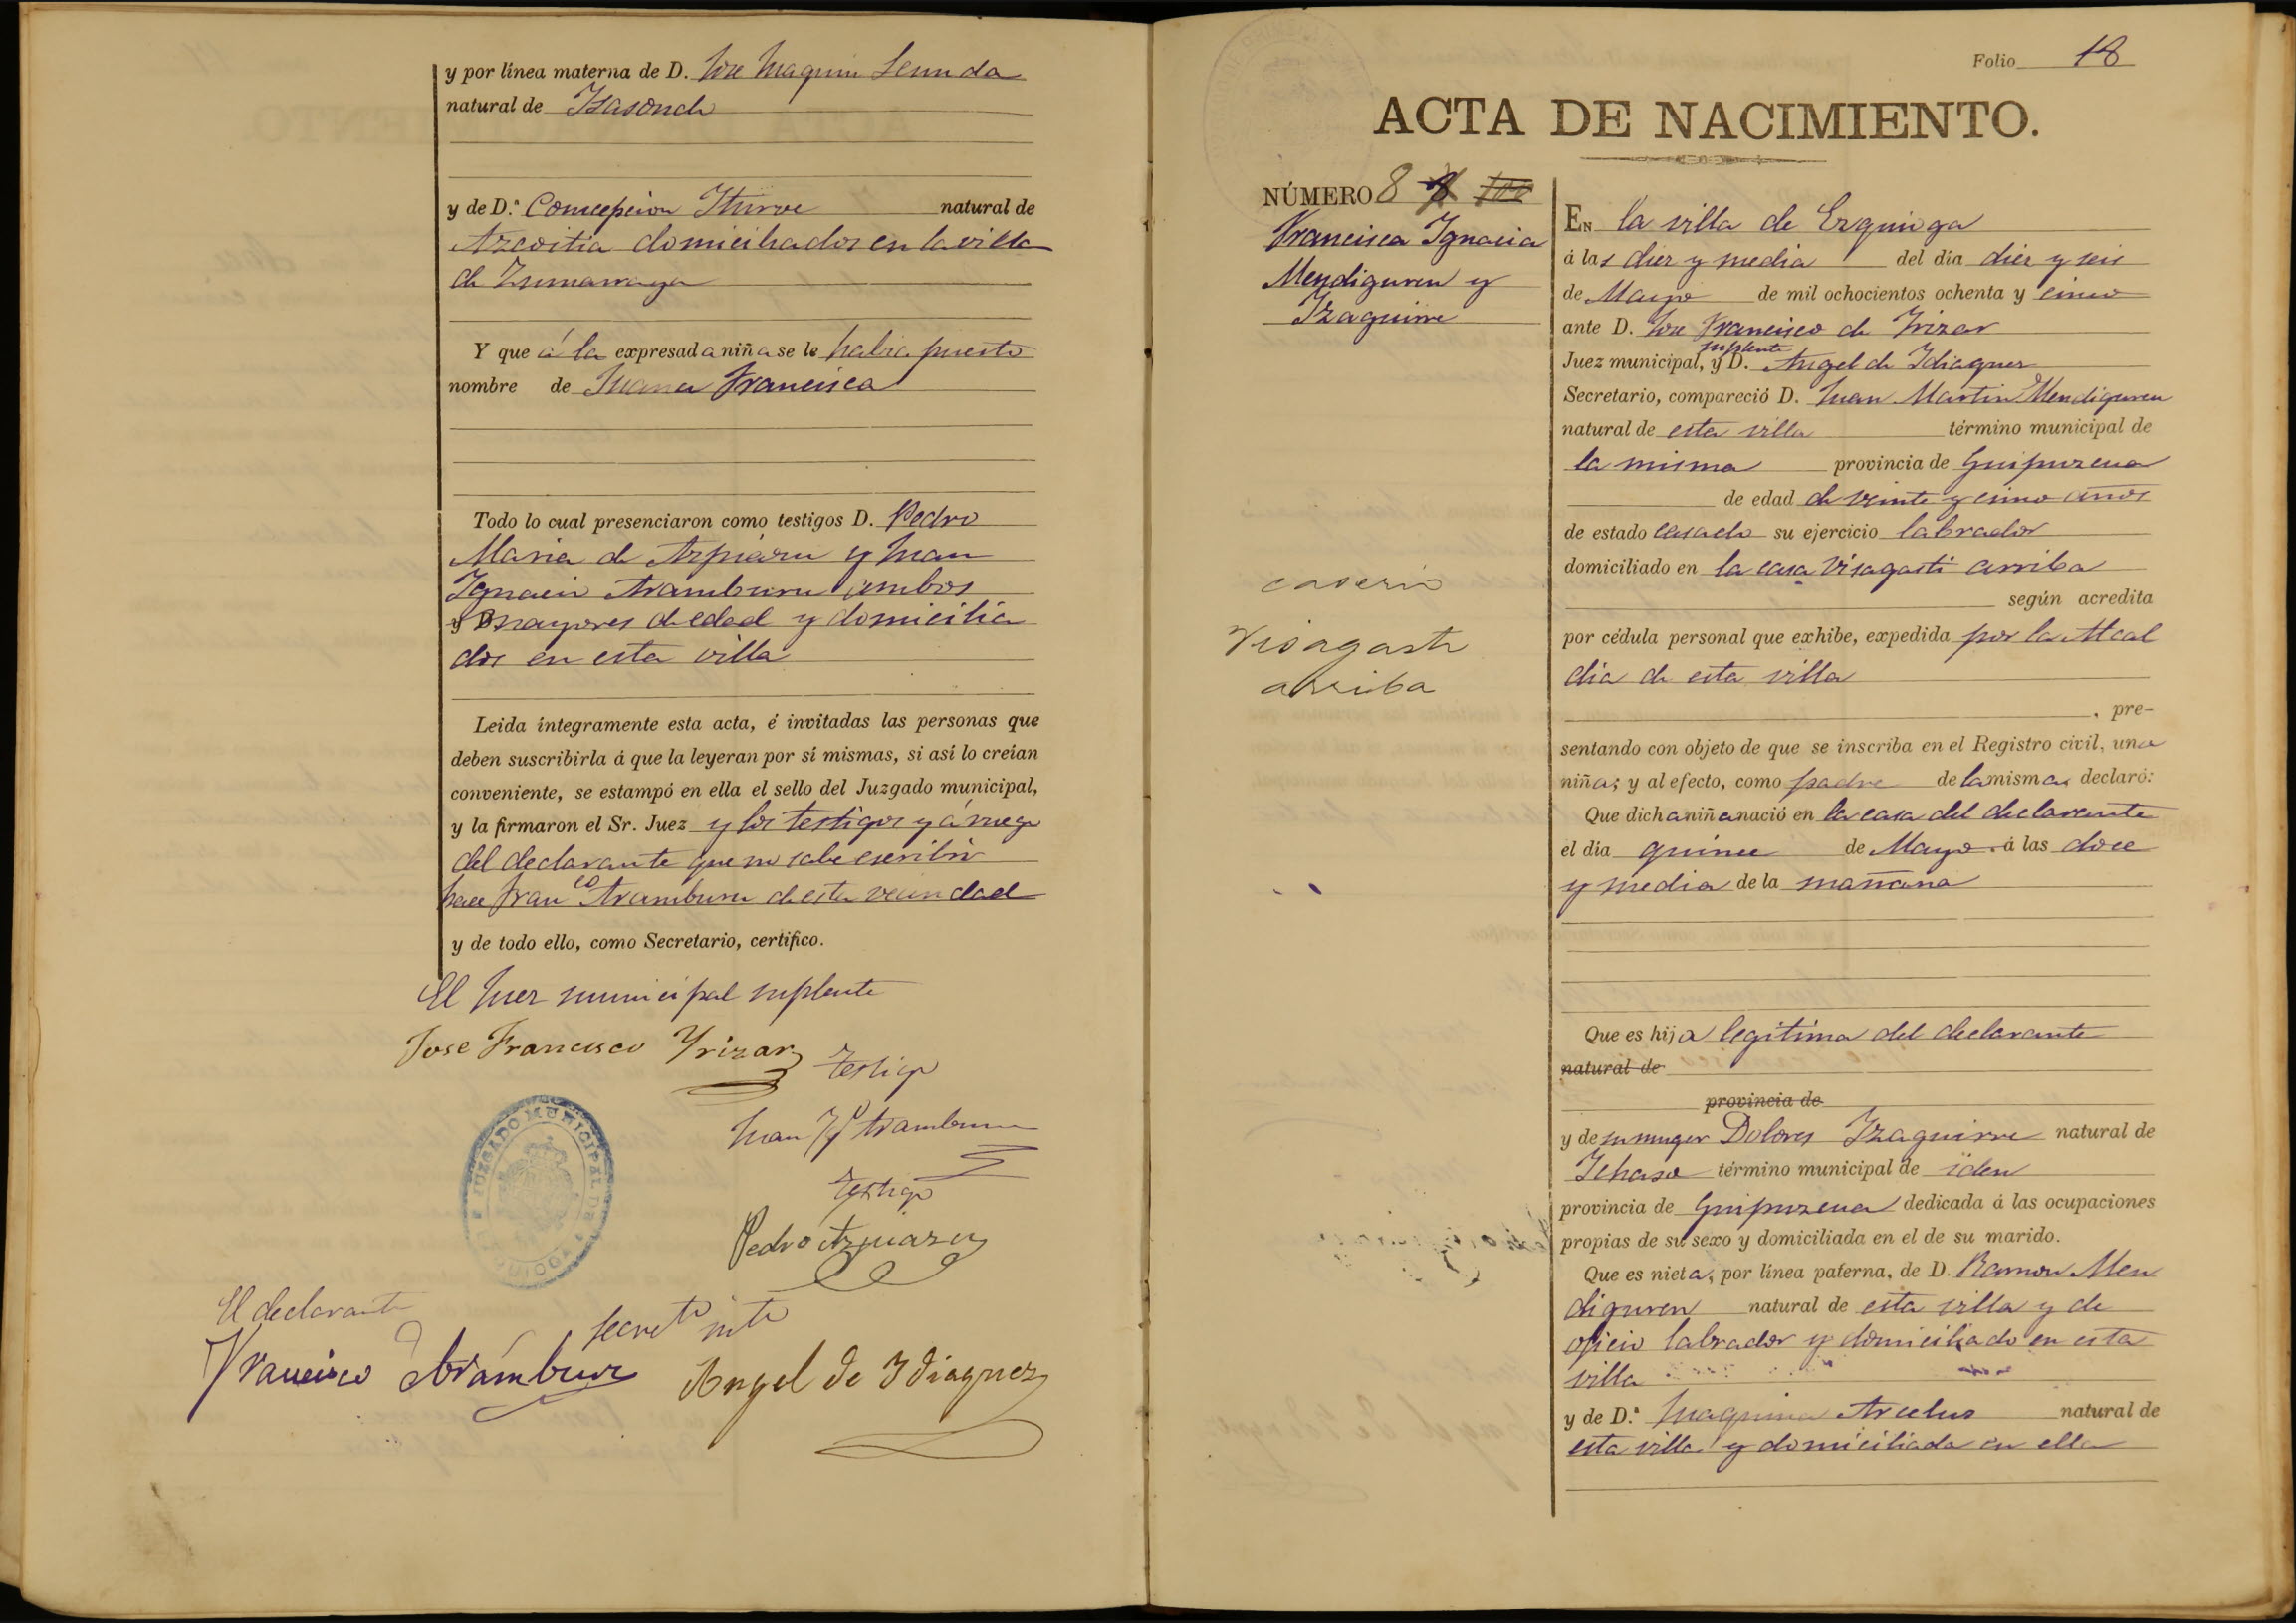 y por línea materna de D. Jose Juaquin Lecunda
natural de Isasondo
y de D.ª Concepcion Iturve natural de
Azcoitia domiciliados en la villa
de Zumarraga
Y que á la expresada niña se le habia puesto
nombre de Juana Francisca
Todo lo cual presenciaron como testigos D. Pedro
Maria de Azpiazu y Juan
Ignacio Aramburu ambos
mayores de edad y domicilia
dos en esta villa
Leida íntegramente esta acta, é invitadas las personas que
deben suscribirla á que la leyeran por sí mismas, si así lo creían
conveniente, se estampó en ella el sello del Juzgado municipal,
y la firmaron el Sr. Juez y los testigos y á ruego
del declarante que no sabe escribir
hace Fran co Aramburu de esta vecindad
y de todo ello, como Secretario, certifico.
El Juez municipal suplente
Jose Francisco Yrizar
Testigo
Juan Yg Aramburu
Testigo
Pedro Azpiazu
JUZGADO MUNICIPAL DE
El declarante
Secret
Francisco Arámburu
Angel de Idiaquez
Folio 18
ACTA DE NACIMIENTO.
NÚMERO 8
Francisca Ignacia
Mendiguren y
Izaguirre
caserio
Visagasti
arriba
EN la villa de Ezquioga
á las diez y media del dia diez y seis
de Mayo de mil ochocientos ochenta y cinco
ante D. Jose Francisco de Irizar
suplente
Juez municipal, y D. Angel de Idiaquez
Secretario, compareció D. Juan Martin Mendiguren
natural de esta villa término municipal de
la misma provincia de Guipuzcua
de edad de veinte y cinco años
de estado casado su ejercicio labrador
domiciliado en la casa Visagasti arriba
según acredita
por cédula personal que exhibe, expedida por la Alcal
dia de esta villa
, pre-
sentando con objeto de que se inscriba en el Registro civil, una
niña; y al efecto, como padre de la misma, declaró:
Que dicha niña nació en la casa del declarante
el día quince de Mayo á las doce
y media de la mañana
Que es hija legitima del declarante
natural de
provincia de
y de su muger Dolores Izaguirre natural de
Ichaso término municipal de iden
provincia de Guipuzcua dedicada á las ocupaciones
propias de su sexo y domiciliada en el de su marido.
Que es nieta, por línea paterna, de D. Ramon Men
diguren natural de esta villa y de
oficio labrador y domiciliado en esta
villa
y de D.ª Juaquina Arcelus natural de
esta villa y domiciliada en ella